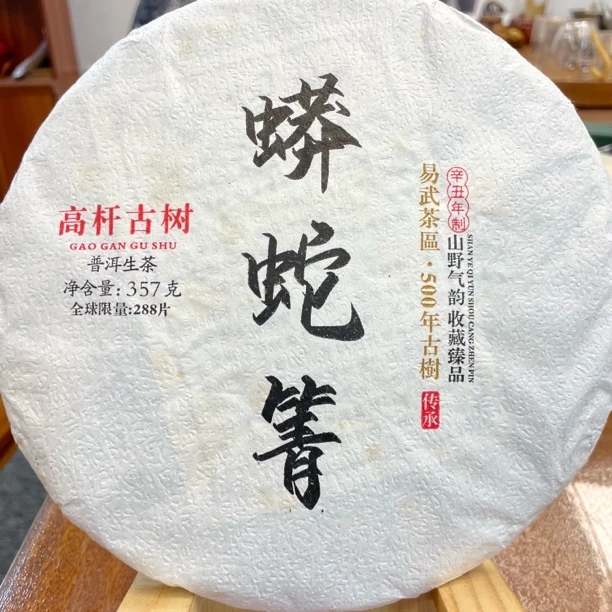 蟒蛇箐
高杆古树
GAO GAN GU SHU
普洱生茶
净含量: 357克
全球限量:288片
辛丑年制
山野气韵 收藏臻品
SHAN YE QI YUN SHOU CANG ZHEN PIN
易武茶區·500年古樹
传承